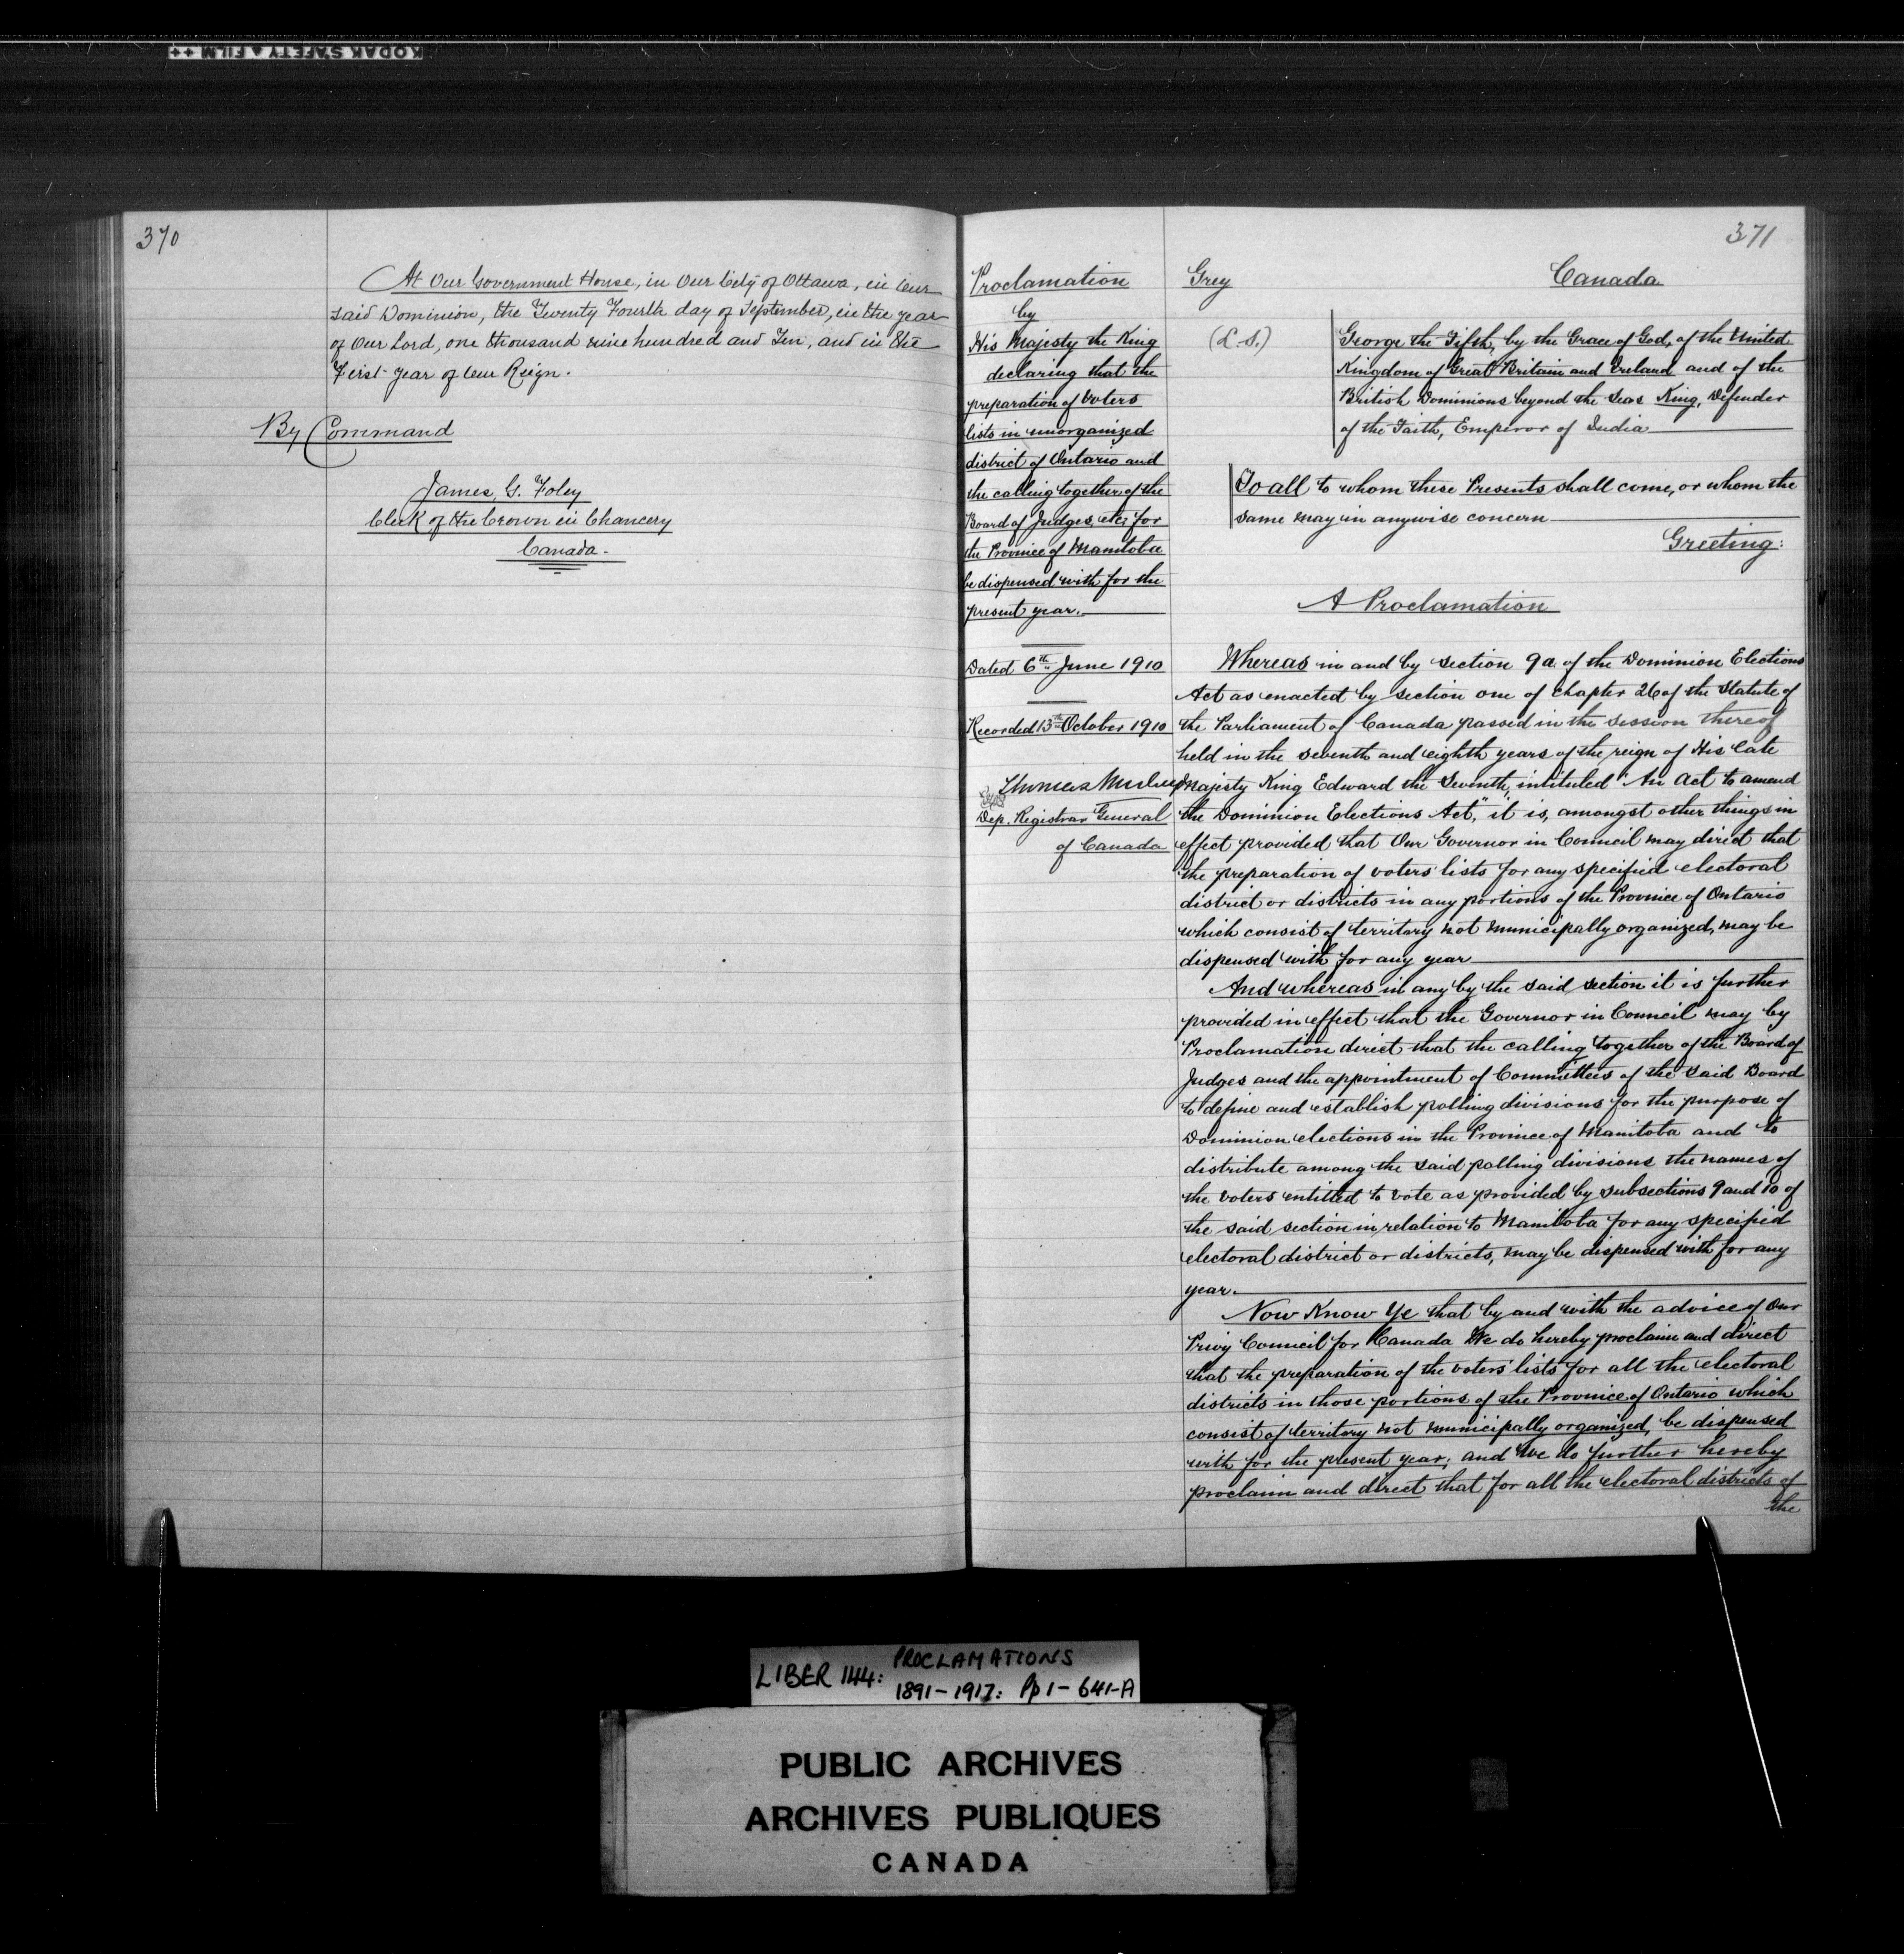 KODAK SAFETY FILM ++
370
At Our Government House, in Our City of Ottawa, in Our
said Dominion, the Twenty Fourth day of September, in the year
of Our Lord, one thousand nine hundred and Ten, and in the
First year of Our Reign.
By Command
James, G. Foley
Clerk of the Crown in Chancery
Canada.
371
Proclamation
by
His Majesty the King
declaring that the
preparation of Voters
lists in unorganized
district of Ontario and
the calling together of the
Board of Judges, etc; for
the Province of Manitoba
be dispensed with for the
present year.
Dated 6th June 1910
Recorded 13th October 1910
Thomas Mulvey
Dep. Registrar General
of Canada
Grey
Canada
(L.S.)
George the Fifth, by the Grace of God, of the United
Kingdom of Great Britain and Ireland and of the
British Dominions beyond the Seas King, Defender
of the Faith, Emperor of India
To all to whom these Presents shall come, or whom the
same may in anywise concern
Greeting:
A Proclamation
Whereas in and by section 9a of the Dominion Elections
Act as enacted by section one of chapter 26 of the Statute of
the Parliament of Canada passed in the session thereof
held in the seventh and eighth years of the reign of His late
Majesty King Edward the Seventh, intituled "An Act to amend
the Dominion Elections Act," it is, amongst other things in
effect provided that Our Governor in Council may direct that
the preparation of voters' lists for any specified electoral
district or districts in any portions of the Province of Ontario
which consist of territory not municipally organized, may be
dispensed with for any year
And whereas in any by the said section it is further
provided in effect that the Governor in Council may by
Proclamation direct that the calling together of the Board of
Judges and the appointment of Committees of the said Board
to define and establish polling divisions for the purpose of
Dominion elections in the Province of Manitoba and to
distribute among the said polling divisions the names of
the voters entitled to vote as provided by subsections 9 and 10 of
the said section in relation to Manitoba for any specified
electoral district or districts, may be dispensed with for any
year.
Now Know Ye that by and with the advice of Our
Privy Council for Canada We do hereby proclaim and direct
that the preparation of the voters' lists for all the electoral
districts in those portions of the Province of Ontario which
consist of territory not municipally organized, be dispensed
with for the present year; and We do further hereby
proclaim and direct that for all the electoral districts of
the
LIBER 144: PROCLAMATIONS
1891-1917: Pp 1-641-A
PUBLIC ARCHIVES
ARCHIVES PUBLIQUES
CANADA